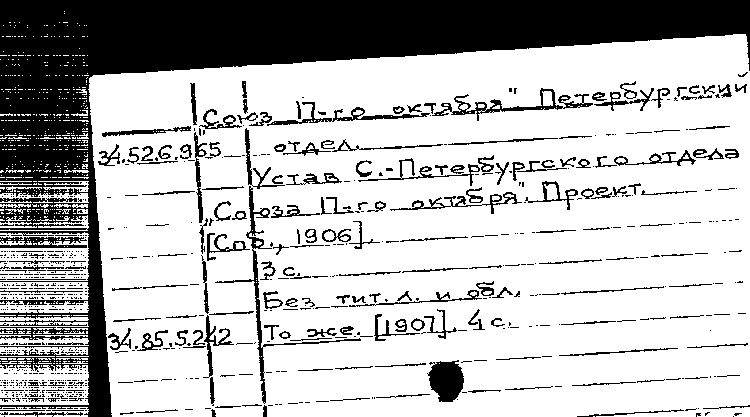 „Союз 17-го октября" Петербургский
34.52.6.965 отдел.
Устав С.-Петербургского отдела
„Союза 17-го октября". Проект.
[Спб., 1906].
3 с.
Без тит. л. и обл.
34.85.5.242 То же. [1907]. 4 с.